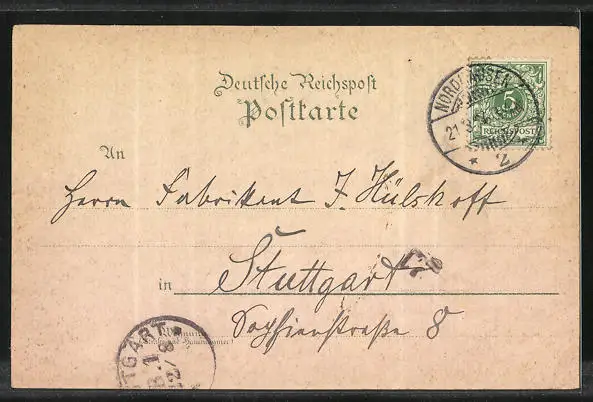 Deutsche Reichspost
Postkarte
NORDHAUSEN
5
REICHSPOST
21
* 2
An
Herrn Fabrikant J. Hülshoff
in Stuttgart
Sophienstraße 8
TTGART